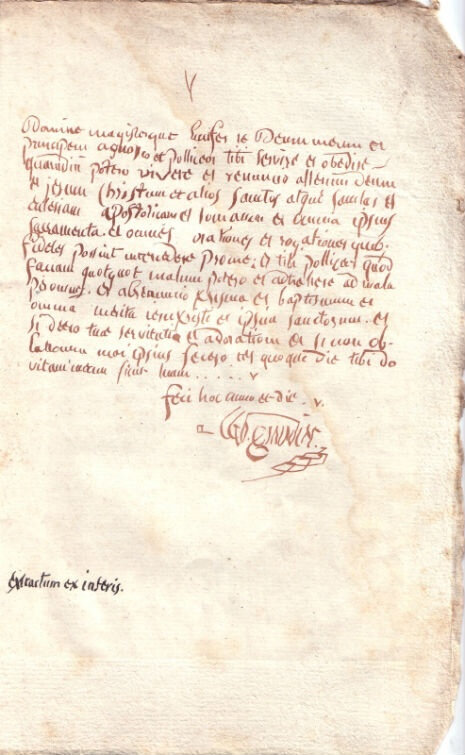 Domine magisterque Lucifer te Deum meum et
principem agnosco et polliceor tibi servire et obedire
quamdiu potero vivere et renuncio alterum Deum
et jesum Christum et alios sanctos atque sanctas et
eclesiam apostolicam et romanam et omnia ipsius
sacramenta et omnes orationes et rogationes quib.
fideles possint intercedere pro me; et tibi polliceor quod
faciam quotquot malum potero et adtrahere ad mala
per omnes. et abrenuncio et baptismum et
omnia merita ipsius sanctorum. et
si deero tuae servituti et adorationi et si non ob-
lationem moi ipsius fecero ter quoque die tibi do
vitam meam sicut tuam . . . . . v
feci hoc anno et die . v.
extractum ex inferis.